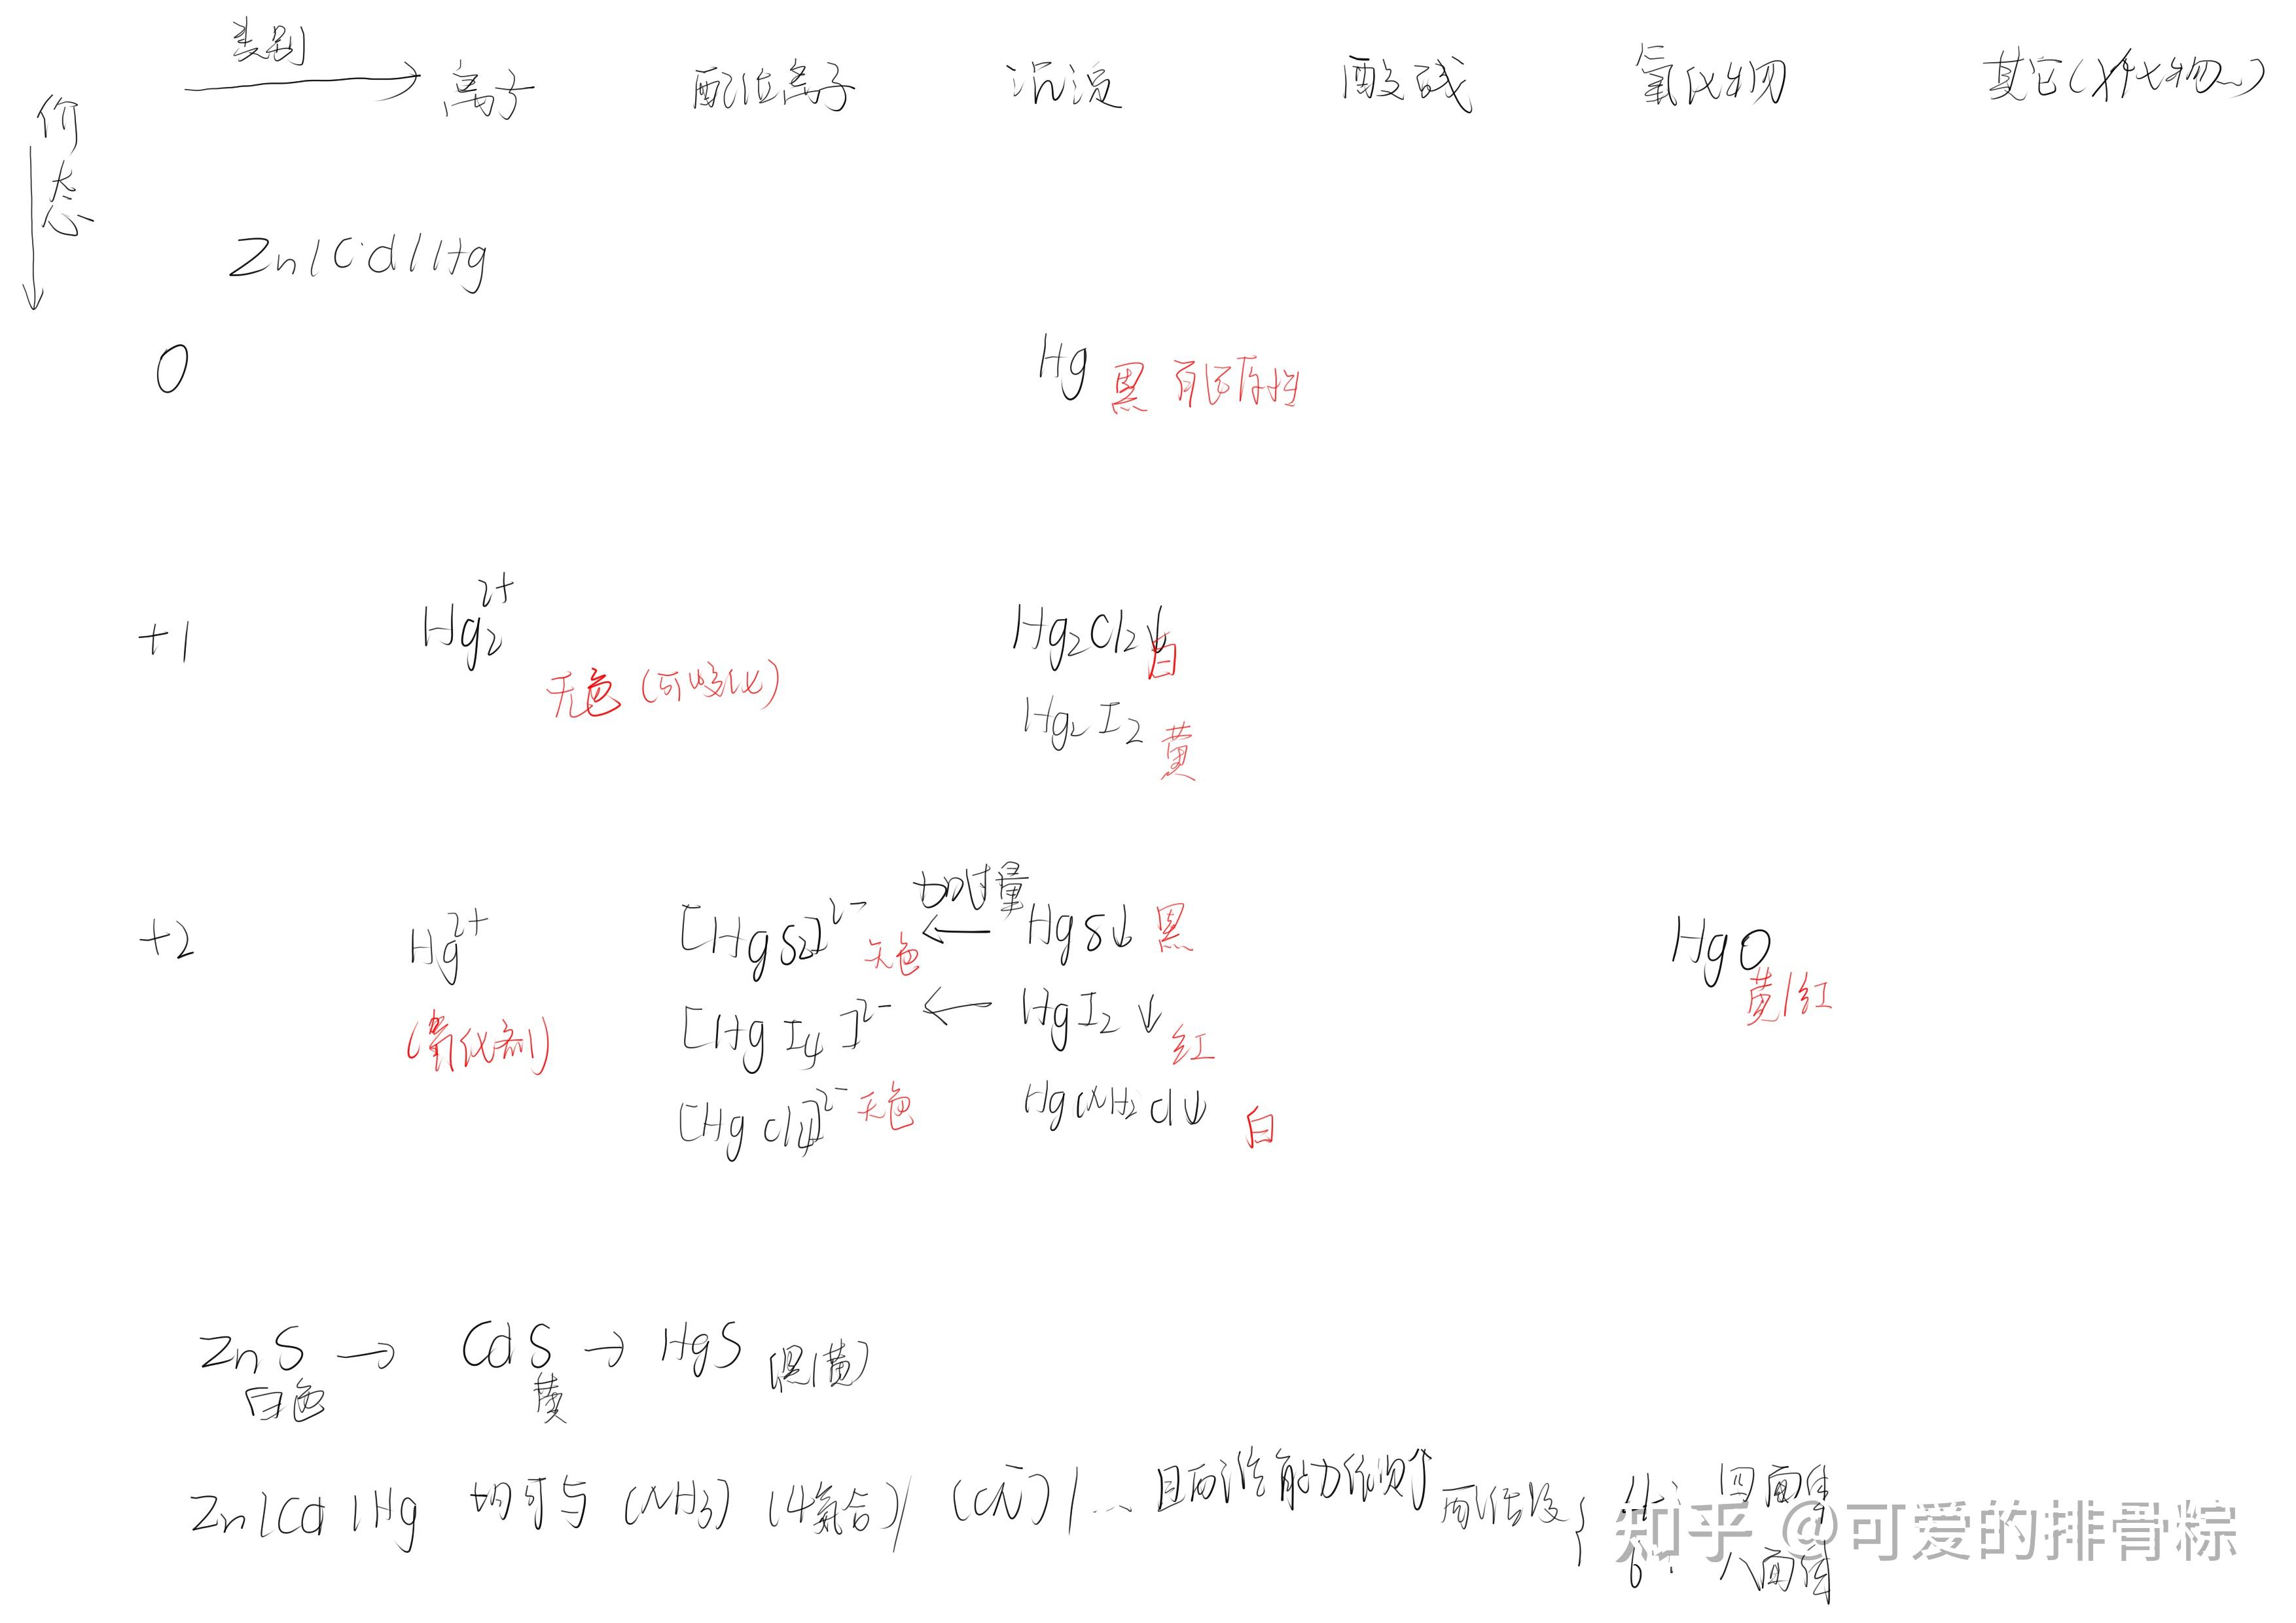 类别
离子 配位离子 沉淀 酸碱 氧化物 其它(卤代物~)
价态
Zn/Cd/Hg
0 Hg 黑
+1 Hg₂²⁺ 无色(可歧化) Hg₂Cl₂↓ 白
Hg₂I₂ 黄
+2 Hg²⁺ (氧化剂) [HgS₂]²⁻ 无色 ← 加过量 HgS↓ 黑 HgO 黄/红
[HgI₄]²⁻ ← HgI₂↓ 红
[HgCl₄]²⁻ 无色 HgNH₂Cl↓ 白
ZnS 白色 → CdS 黄 → HgS (黑/黄)
Zn/Cd/Hg 均可与 (NH₃) (4氨合)/(CN⁻)/... 且配位能力依次↑ 配位数 { 4: 四面体
6: 八面体
知乎 @可爱的排骨粽